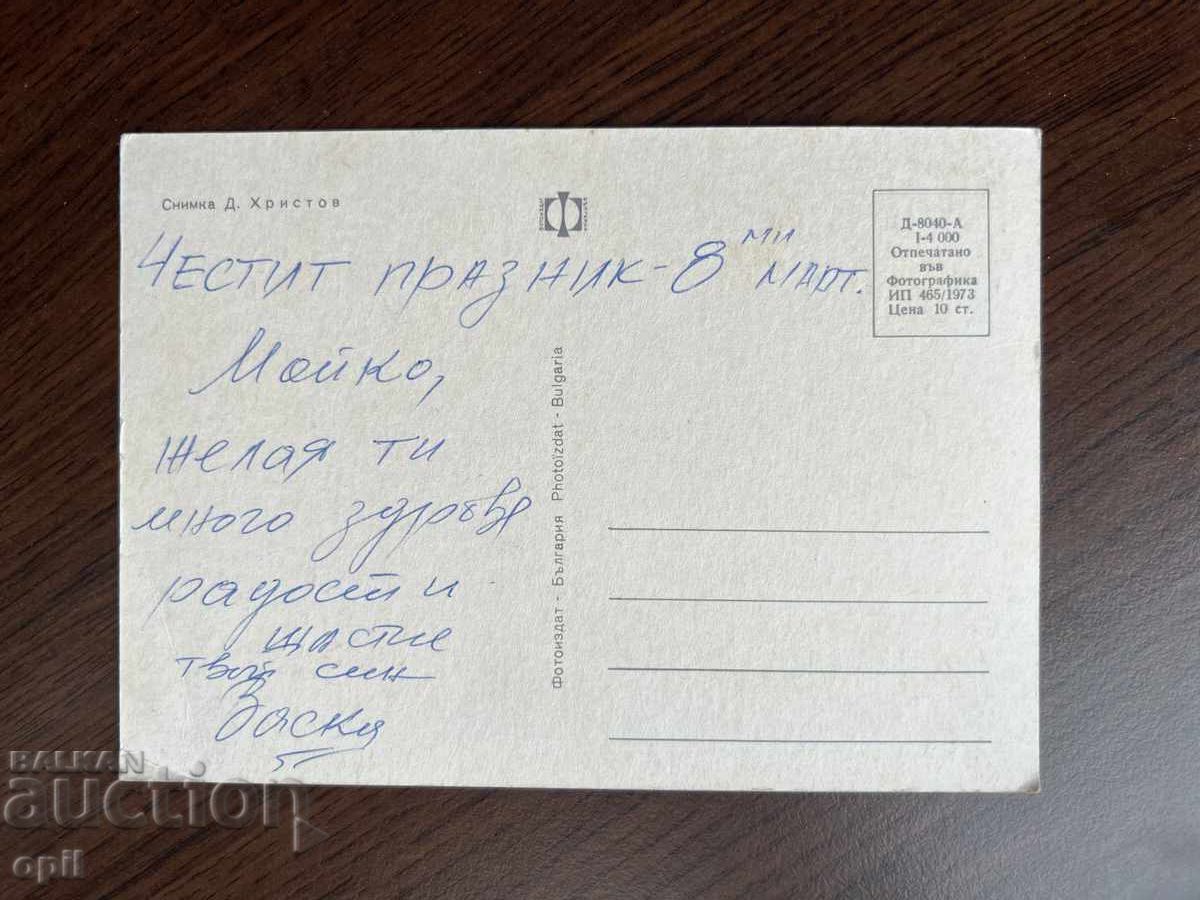 Снимка Д. Христов
Д-8040-А
I-4 000
Отпечатано
във
Фотографика
ИП 465/1973
Цена 10 ст.
ЧЕСТИТ ПРАЗНИК - 8 ми МАРТ.
Майко,
желая ти
много здраве
радост и
щастие
твой син
Васка
Фотоиздат - България Photoizdat - Bulgaria
BALKAN
auction
opil